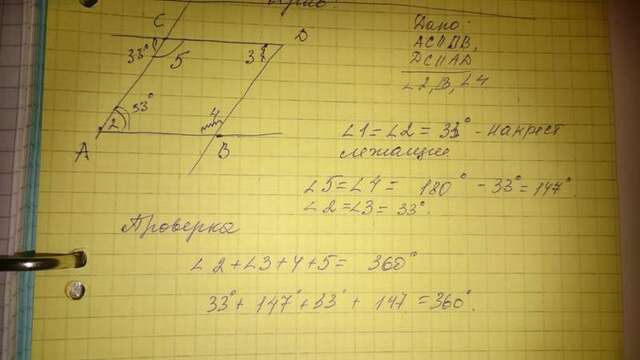 Дано:
AC∥DB,
DC∥AD
∠2,3,∠4
C
D
33°
5
3
33°
2
4
A
B
∠1=∠2=33°-накрест
лежащие
∠5=∠4= 180°-33°=147°
∠2=∠3=33°.
Проверка
∠2+∠3+4+5= 360°
33°+147°+33°+147=360°.